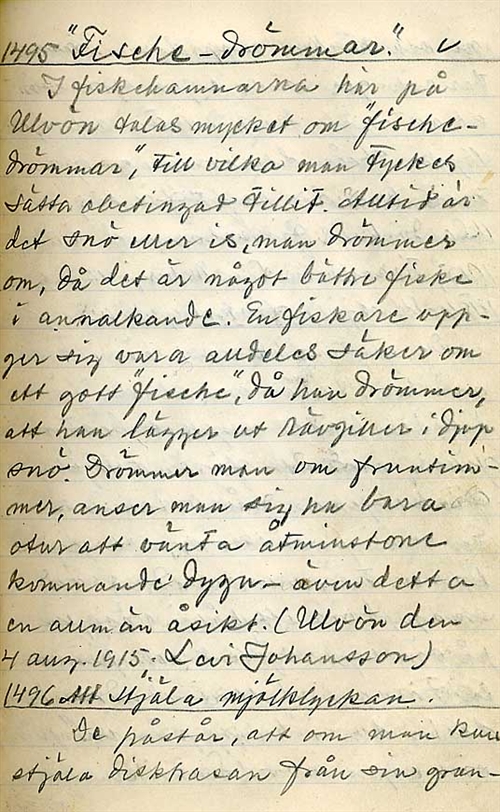 1495 "Fische-drömmar."
I fiskehamnarna här på
Ulvön talas mycket om "fische-
drömmar", till vilka man tyckes
sätta obetingad tillit. Alltid är
det snö eller is, man drömmer
om, då det är något bättre fiske
i annalkande. En fiskare upp-
ger sig vara alldeles säker om
ett gott "fische", då han drömmer,
att han lägger ut rävgiller i djup
snö. Drömmer man om fruntim-
mer, anser man sig ha bara
otur att vänta åtminstone
kommande dygn – även detta
en allmän åsikt. (Ulvön den
4 aug. 1915. Levi Johansson)
1496 Att stjäla mjölklyckan.
De påstår, att om man kan
stjäla disktrasan från sin gran-